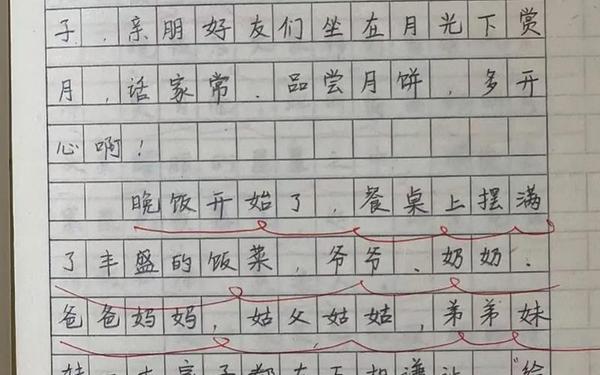 子、亲朋好友们坐在月光下赏
月，话家常、品尝月饼，多开
心啊！
晚饭开始了，餐桌上摆满
了丰盛的饭菜，爷爷、奶奶、
爸爸妈妈，姑父姑姑，弟弟妹
妹